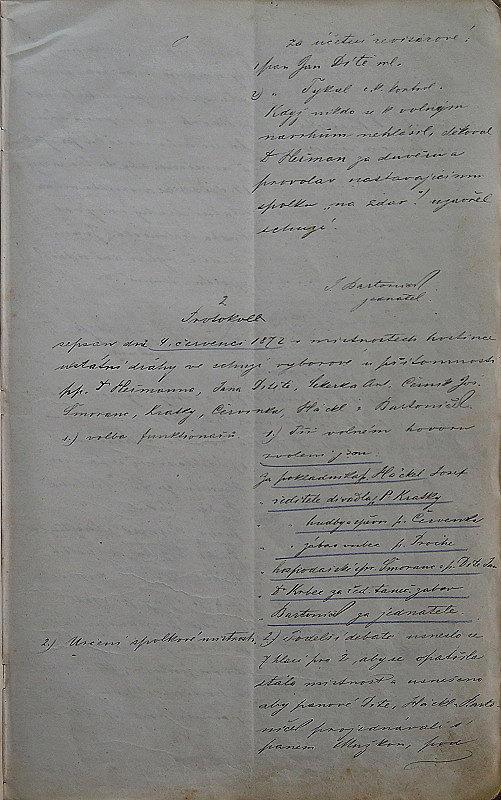 za účetní revisorové:
1) pan Jan Dítě ml.
2) " Tykal c.k. kontrol.
Když nikdo se k volným
návrhům nehlásil, děkoval
Dr Heřman za důvěru a
provolav nastávajícímu
spolku "na zdar"! uzavřel
schůzi.
J. Bartoníček
jednatel.
2
Protokoll
sepsán dne 4. července 1872 v místnostech hostince
u státní dráhy ve schůzi výborové u přítomnosti
pp. Dr Heřmanna, Jana Dítěte, Ant., Černík Jos.
Šmoranc, Krasky, Červenka, Häckl a Bartoníček.
1.) volba funkcionářů.
1.) Při volném hovoru
zvoleni jsou
za pokladníka p. Häckel Josef
" ředitele divadla, P. Krasky
" hudby a zpěvu p. Červenka
" zábav vůbec p.
" hospodářský spr. Šmoranc a p. Dítě Jan
" Dr Krbec za řed. taneč. zábav
Bartoníček za jednatele.
2.) Určení spolkové místnosti.
2.) Po delší debatě usneslo se
7 hlasů pro 2, aby se opatřila
stálá místnost a usneseno
aby pánové Dítě, Häckl a Barto-
níček projednávali s
panem pod